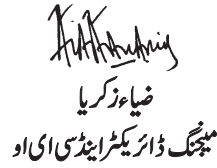 ضیاء زکریا
مینجنگ ڈائریکٹر اینڈ سی ای او